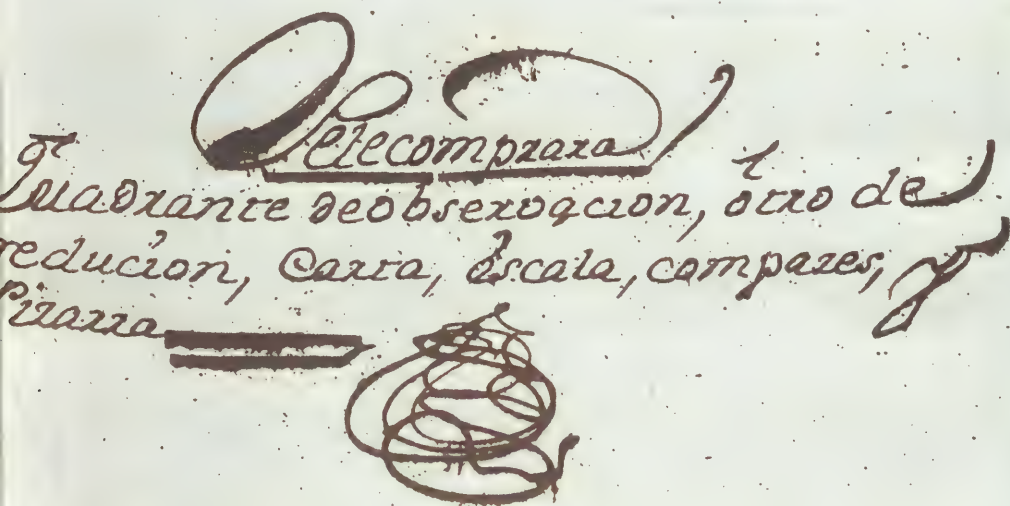 Setecomprara
Quadrante deobservacion, otro de
reducion, Carta, escala, compazes, y
Pizarra